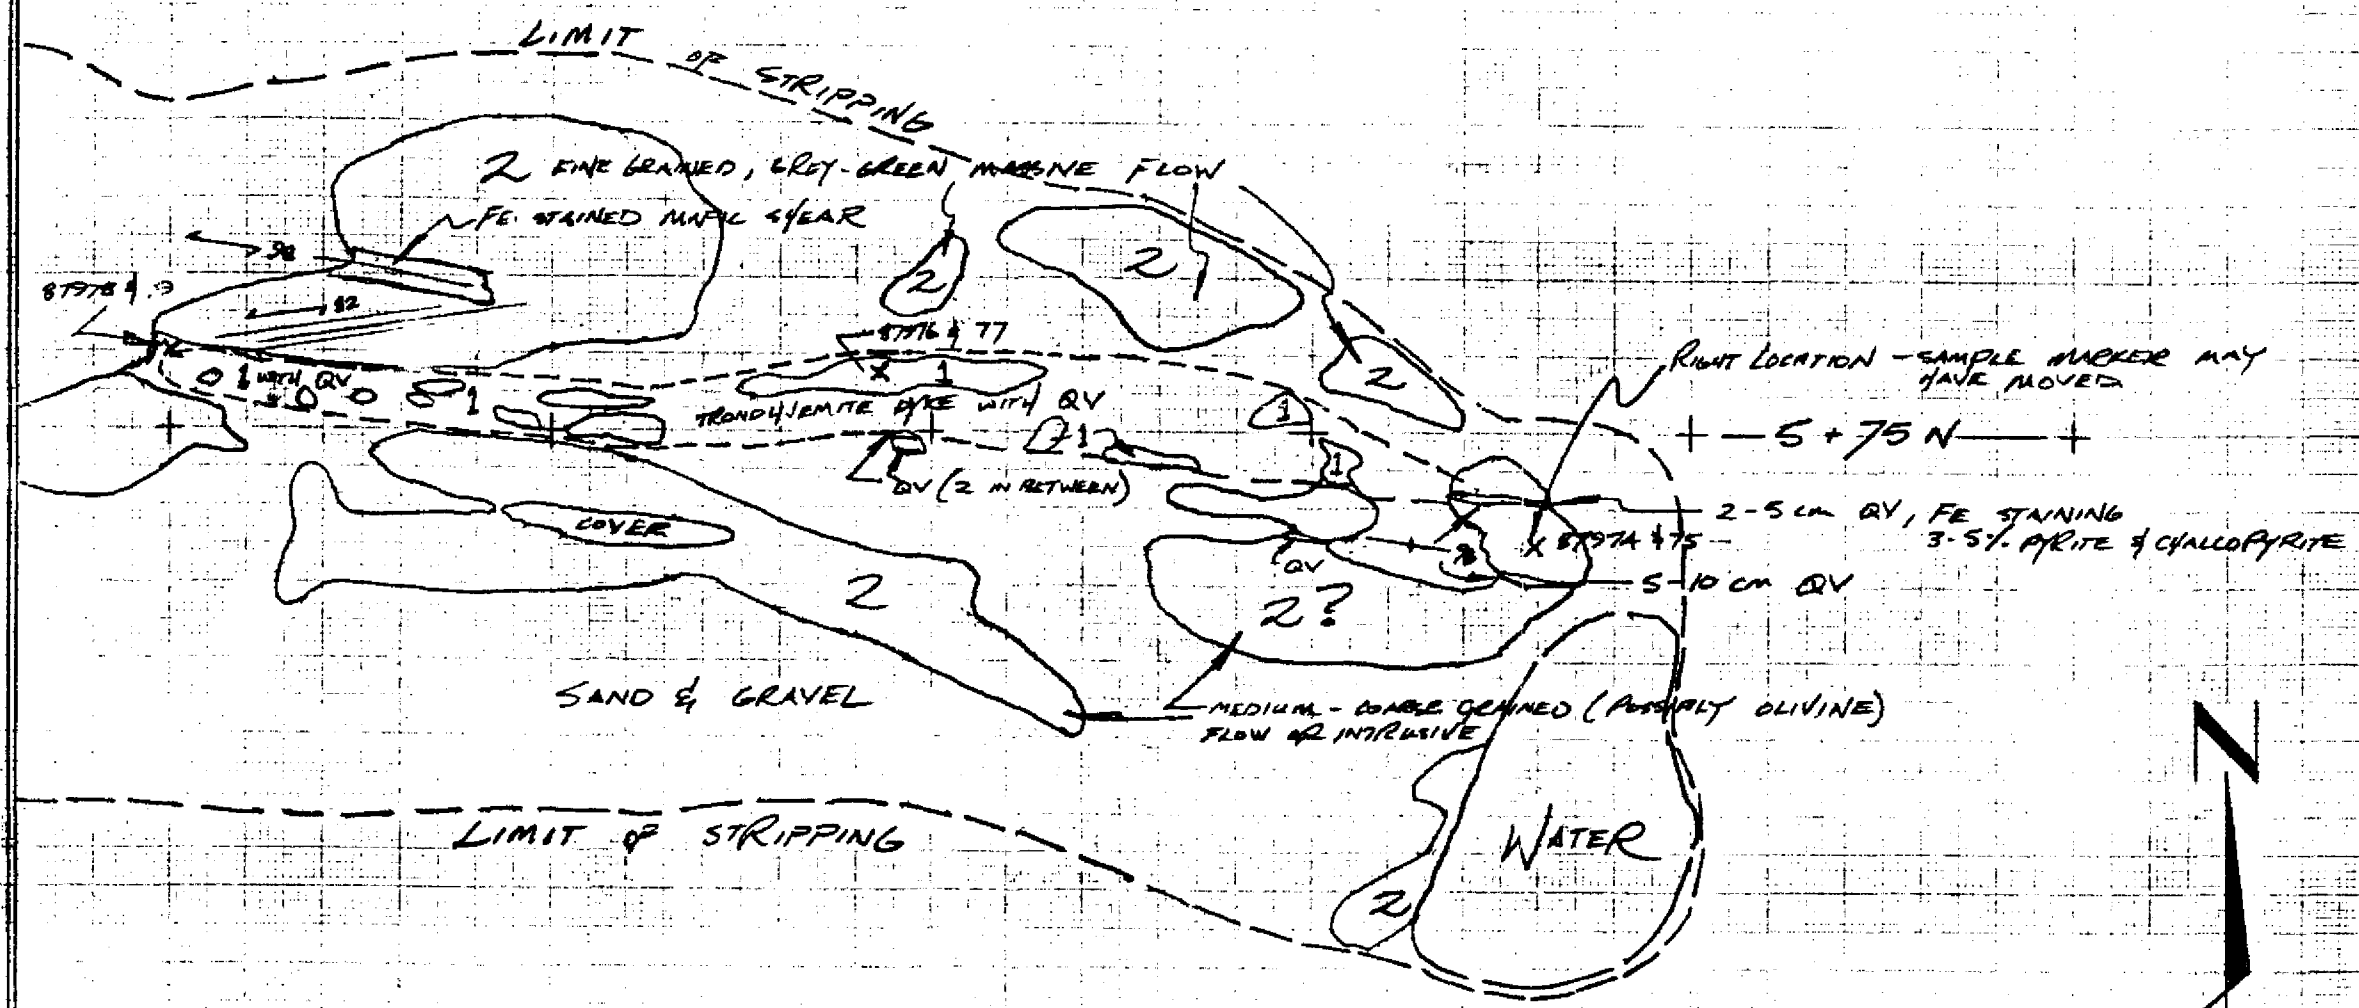 LIMIT
OF STRIPPING
2 FINE GRAINED, GREY-GREEN MASSIVE FLOW
FE STAINED MAFIC SHEAR
2
2
82
87976 & 77
1 WITH QV
1
1
TRONDHJEMITE DYKE WITH QV
1
1
2
RIGHT LOCATION - SAMPLE MARKER MAY
HAVE MOVED
5 + 75 N
1
QV (2 IN BETWEEN)
2-5 cm QV, FE STAINING
3-5% PYRITE & CHALCOPYRITE
COVER
QV
87974 & 75
5-10 cm QV
2
2?
SAND & GRAVEL
MEDIUM - COARSE GRAINED (POSSIBLY OLIVINE)
FLOW OR INTRUSIVE
N
LIMIT OF STRIPPING
WATER
2